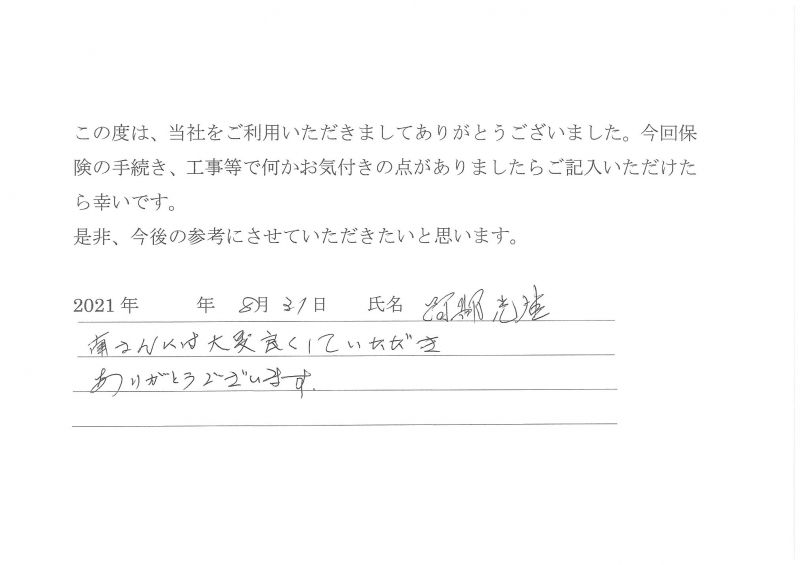 この度は、当社をご利用いただきましてありがとうございました。今回保
険の手続き、工事等で何かお気付きの点がありましたらご記入いただけた
ら幸いです。
是非、今後の参考にさせていただきたいと思います。
2021年 年 8月31日 氏名 阿部
さんには大変良くしていただき
ありがとうございます.